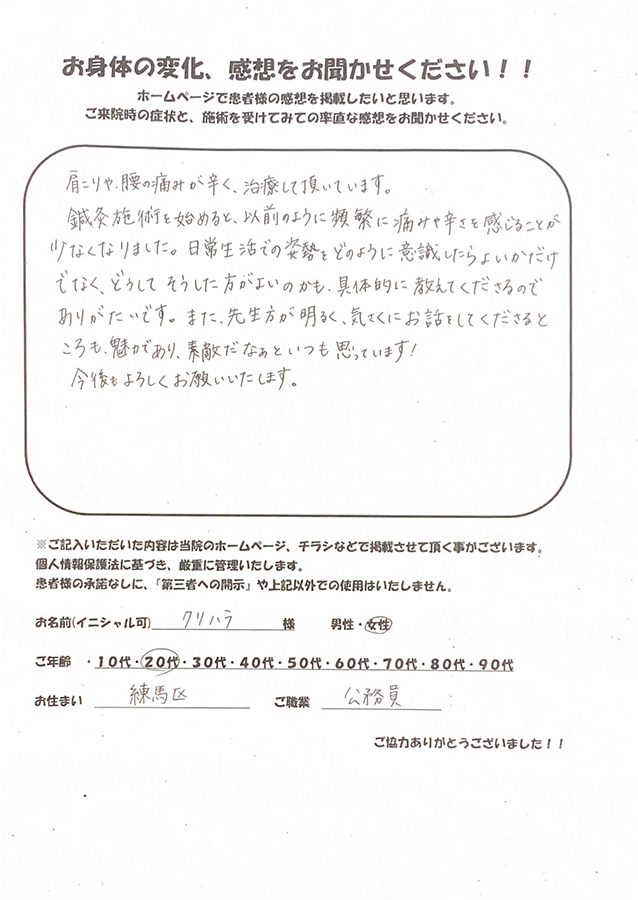 お身体の変化、感想をお聞かせください！！
ホームページで患者様の感想を掲載したいと思います。
ご来院時の症状と、施術を受けてみての率直な感想をお聞かせください。
肩こりや、腰の痛みが辛く、治療して頂いています。
鍼灸施術を始めると、以前のように頻繁に痛みや辛さを感じることが
少なくなりました。日常生活での姿勢をどのように意識したらよいかだけ
でなく、どうしてそうした方がよいのかも、具体的に教えてくださるので
ありがたいです。また、先生方が明るく、気さくにお話をしてくださると
ころも、魅力であり、素敵だなぁといつも思っています！
今後もよろしくお願いいたします。
※ご記入いただいた内容は当院のホームページ、チラシなどで掲載させて頂く事がございます。
個人情報保護法に基づき、厳重に管理いたします。
患者様の承諾なしに、『第三者への開示』や上記以外での使用はいたしません。
お名前(イニシャル可) クリハラ 様 男性・女性
ご年齢 ・10代・20代・30代・40代・50代・60代・70代・80代・90代
お住まい 練馬区 ご職業 公務員
ご協力ありがとうございました！！